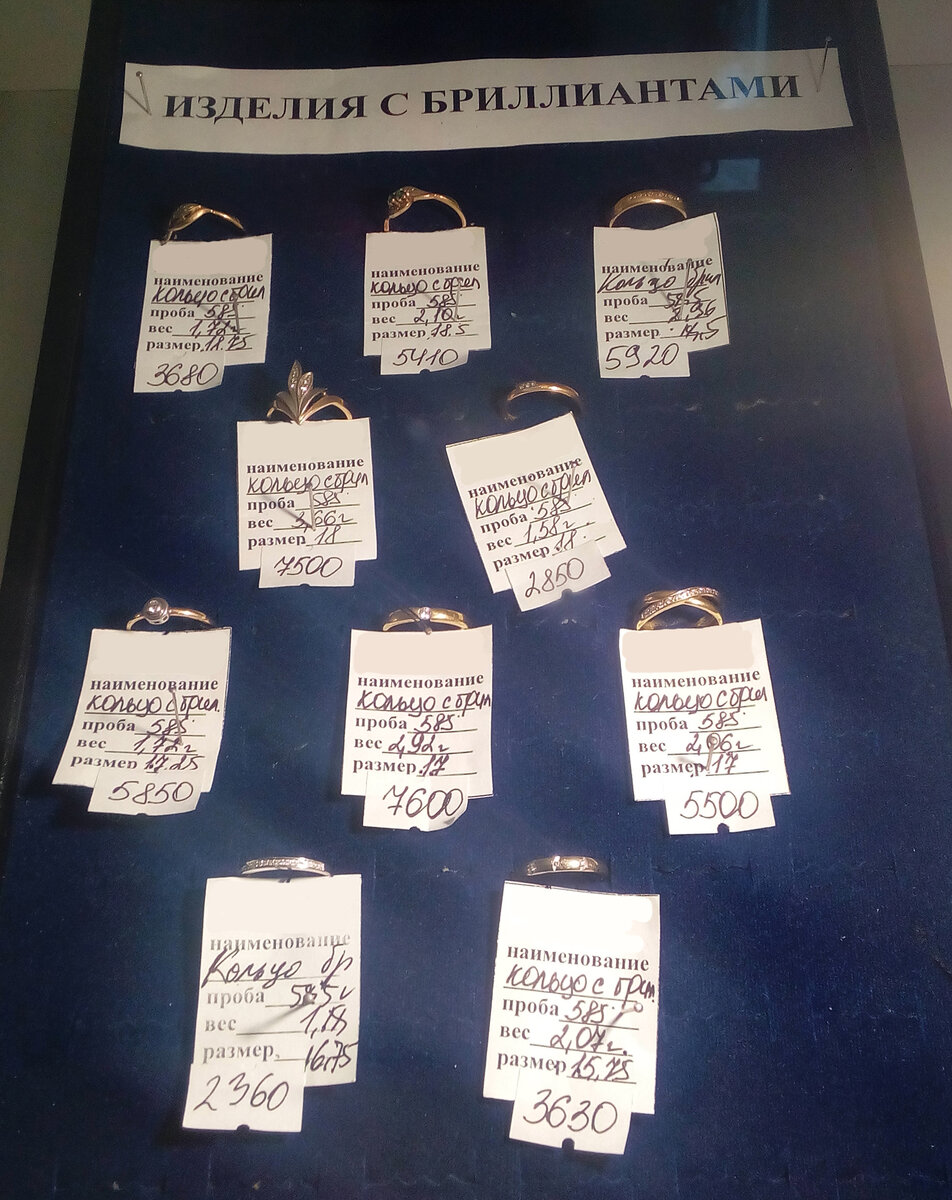 ИЗДЕЛИЯ С БРИЛЛИАНТАМИ
наименование
кольцо с брил
проба 585
вес 1,72 г
размер 18.75
3680
наименование
кольцо с брил
проба 585
вес 2,10 г
размер 18.5
5410
наименование
Кольцо брил
проба 585
вес 2,96
размер 17,5
5920
наименование
кольцо с брил
проба 585
вес 3,66 г
размер 18
7500
наименование
кольцо с брил
проба 585
вес 1,58 г
размер 18
2850
наименование
кольцо с брил
проба 585
вес 1,72 г
размер 17.25
5850
наименование
кольцо с брил
проба 585
вес 2,92 г
размер 17
7600
наименование
кольцо с брил
проба 585
вес 2,06 г
размер 17
5500
наименование
Кольцо бр
проба 585
вес
размер 16,75
2360
наименование
кольцо с брил
проба 585
вес 2,07 г.
размер 15,75
3630